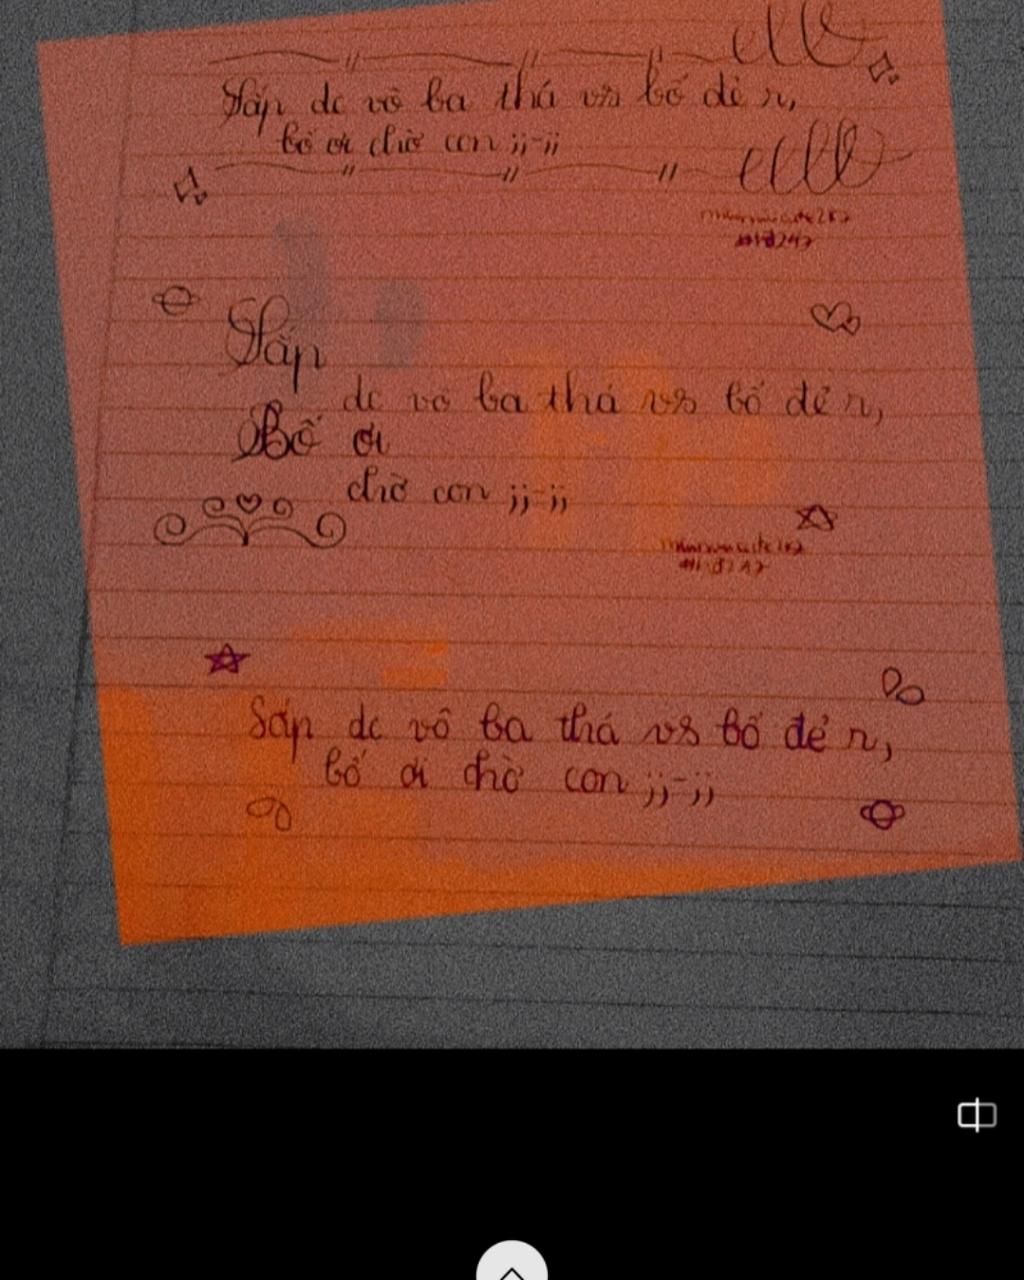 Sắp dc vô ba thá vs bố đẻ r,
bố ơi chờ con ;;-;;
Sắp
dc vô ba thá vs bố đẻ r,
Bố ơi
chờ con ;;-;;
Sắp dc vô ba thá vs bố đẻ r,
bố ơi chờ con ;;-;;